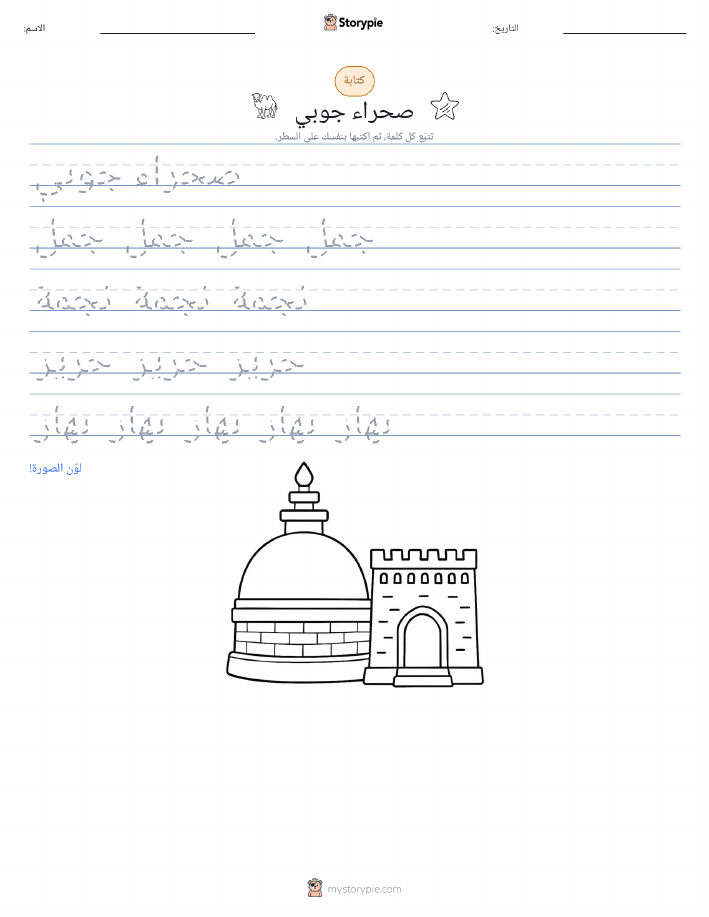 الاسم:
Storypie
التاريخ:
كتابة
صحراء جوبي
تتبّع كل كلمة، ثم اكتبها بنفسك على السطر.
صحراء جوبي
جمل جمل جمل جمل
نجمة نجمة نجمة
حرير حرير حرير
نهار نهار نهار نهار نهار
لوّن الصورة!
mystorypie.com